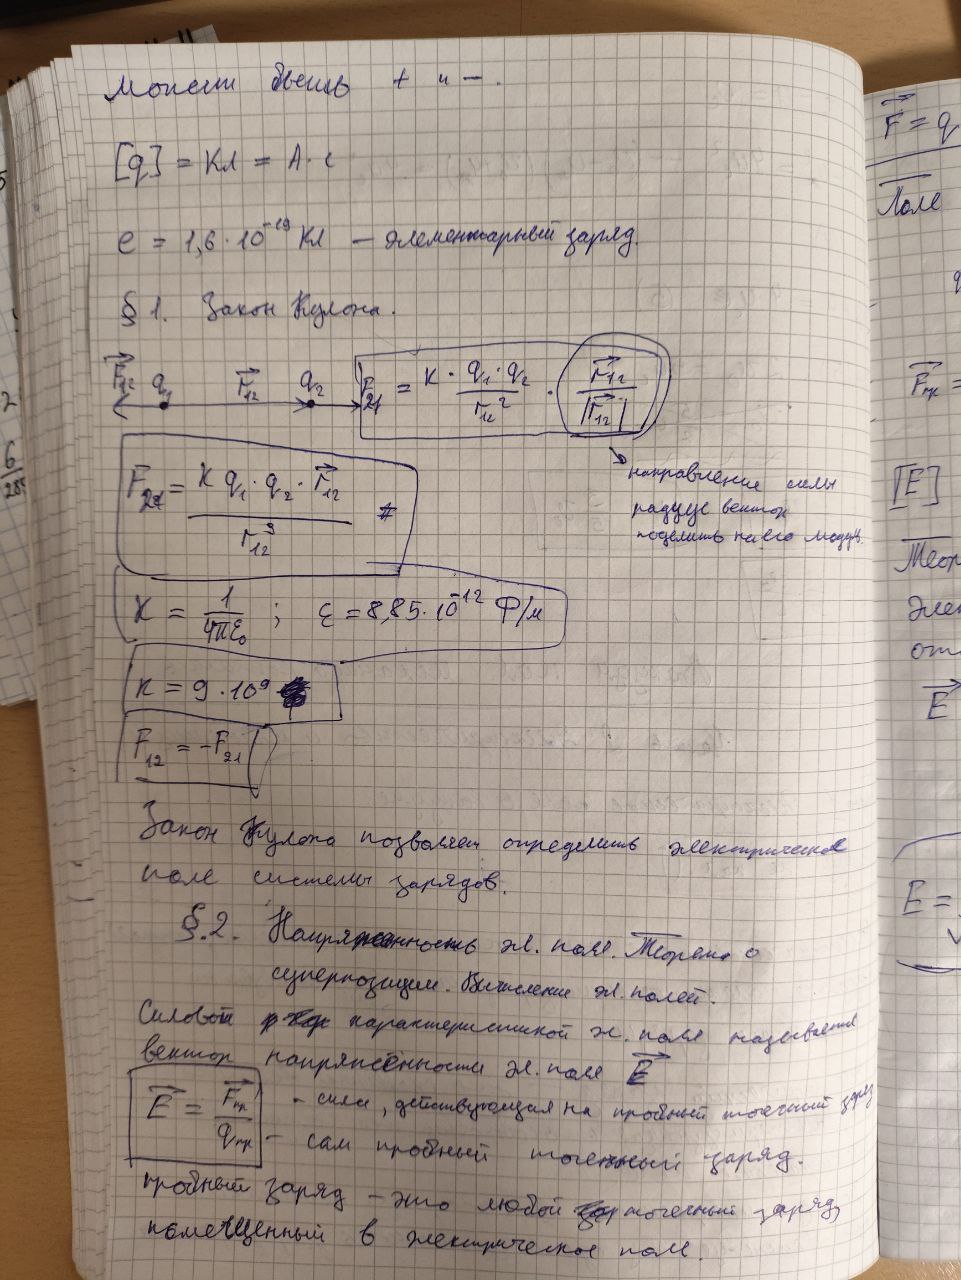 Может быть + и –.
[q] = Кл = А · с
e = 1,6 · 10⁻¹⁹ Кл – элементарный заряд.
§ 1. Закон Кулона.
F₁₂ q₁ r₁₂ q₂ F₂₁ = K · q₁ · q₂ / r₁₂² · r₁₂ / |r₁₂|
направление силы
радиус вектор
поделить на его модуль
F₂₁ = K q₁ · q₂ · r₁₂ / r₁₂³
K = 1 / 4πε₀ ; ε = 8,85 · 10⁻¹² Ф/м
K = 9 · 10⁹
F₁₂ = – F₂₁
Закон Кулона позволяет определить электрическое
поле системы зарядов.
§.2. Напряженность эл. поля. Теорема о
суперпозиции. Вычисление эл. полей.
Силовой характеристикой эл. поля называется
вектор напряжённости эл. поля E
E = Fпр / qпр - сила, действующая на пробный точечный заряд
– сам пробный точечный заряд.
пробный заряд – это любой точечный заряд,
помещенный в электрическое поле.
F = q
Поле
Fпр =
[E]
Теор
Элек
E
E =